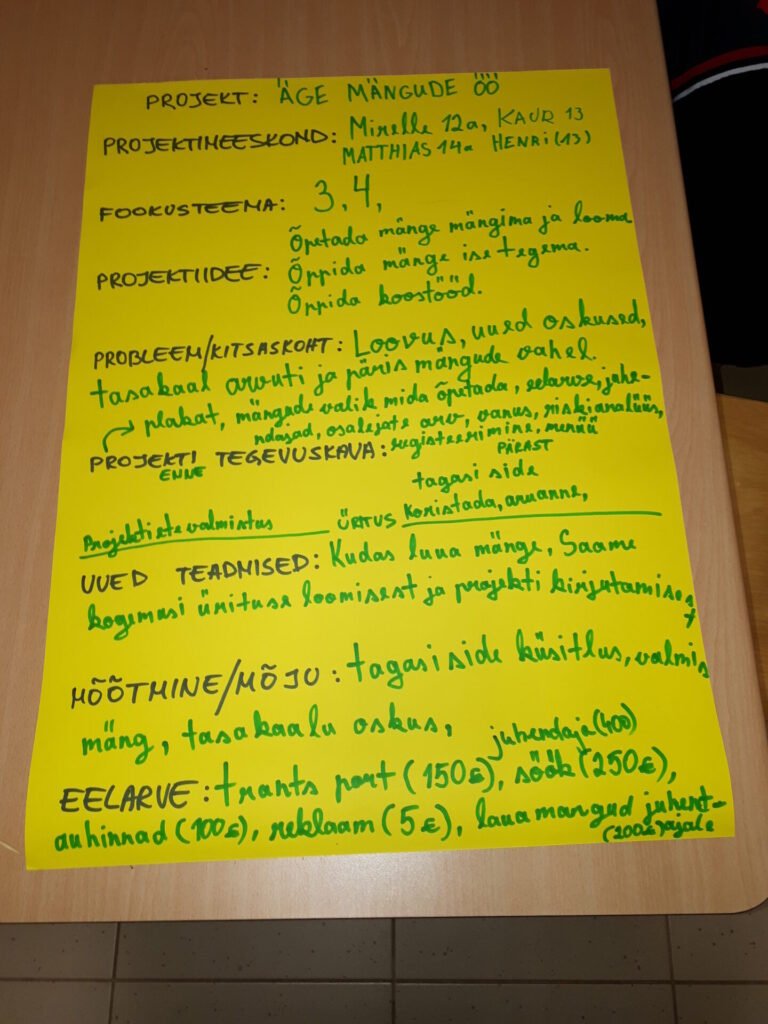 PROJEKT: ÄGE MÄNGUDE ÖÖ
PROJEKTIMEESKOND: Mirelle 12a, KAUR 13
MATTHIAS 14a HENRI (13)
FOOKUSTEEMA: 3, 4,
Õpetada mänge mängima ja looma
PROJEKTIIDEE: Õppida mänge ise tegema.
Õppida koostööd.
PROBLEEM/KITSASKOHT: Loovus, uued oskused,
tasakaal arvuti ja päris mängude vahel.
→ plakat, mängude valik mida õpetada, eelarve, juhe-
ndajad, osalejate arv, vanus, riskianalüüs,
PROJEKTI TEGEVUSKAVA: registeerimine, menüü
ENNE PÄRAST
tagasi side
Projekti ete valmistus ÜRITUS Koristada, aruanne,
UUED TEADMISED: Kudas luua mänge, Saame
kogemusi ürituse loomisest ja projekti kirjutamisest
MÕÕTMINE/MÕJU: tagasi side küsitlus, valmis
mäng, tasakaalu oskus,
juhendaja (400)
EELARVE: trants port (150€), söök (250€),
auhinnad (100€), reklaam (5€), laua mängud juhent-
(200€) ajale